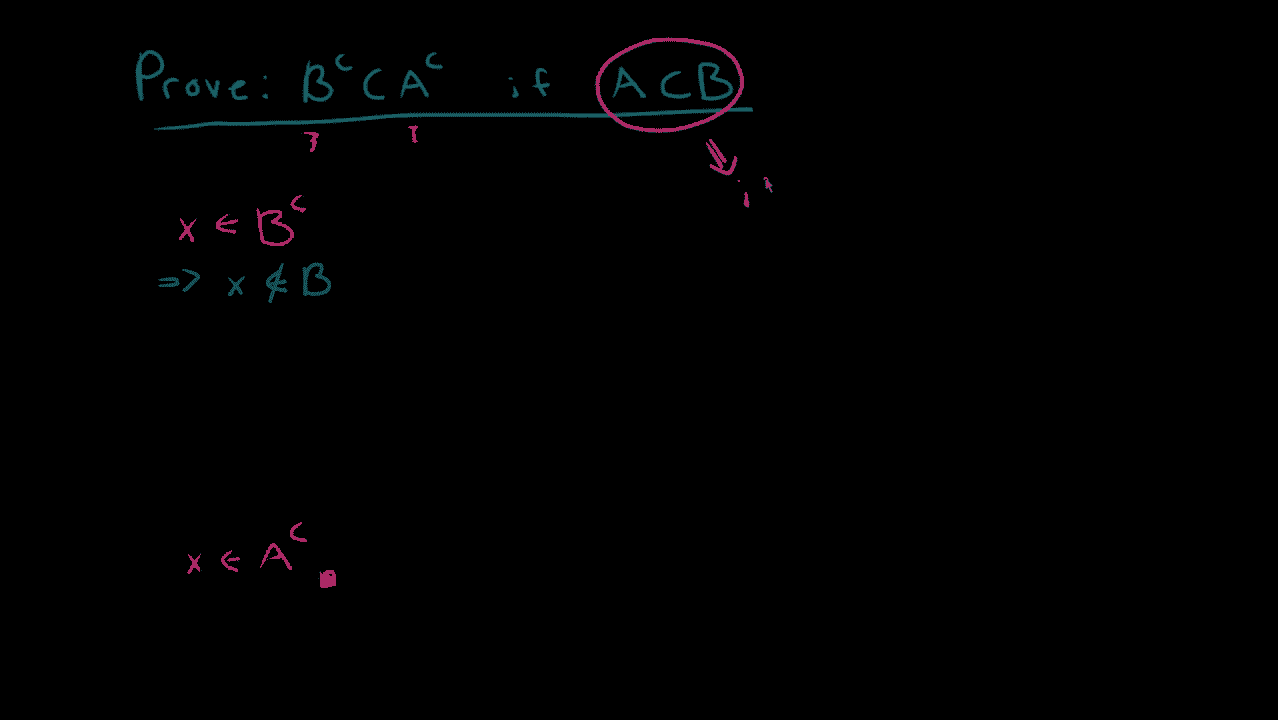 Prove: Bᶜ ⊂ Aᶜ if A ⊂ B
x ∈ Bᶜ
⇒ x ∉ B
x ∈ Aᶜ